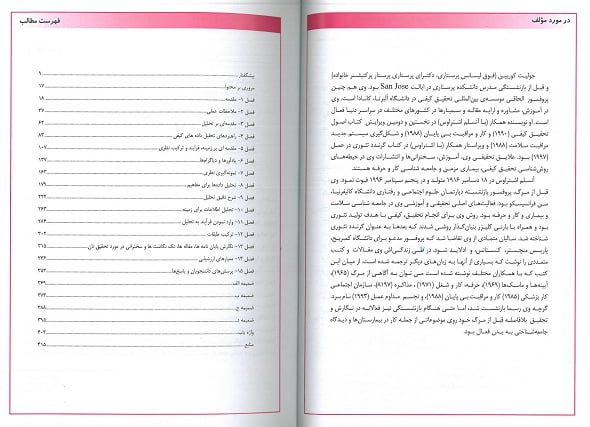 در مورد مؤلف
جولیت کوربین (فوق لیسانس پرستاری، دکترای پرستاری پرستار پرکتیشنر خانواده)
و قبل از بازنشستگی مدرس دانشکده پرستاری در ایالت San Jose بود. وی هم چنین
پروفسور الحاقی موسسه‌ی بین‌المللی تحقیق کیفی در دانشگاه آلبرتا، کانادا است. وی
در آموزش، مشاوره و ارایه مقالات و سمینارها در کشورهای مختلف در سراسر دنیا فعال
است. او نویسنده همکار (با آنسلم اشتراوس) در نخستین و دومین ویرایش کتاب اصول
تحقیق کیفی (۱۹۹۰) و کار و مراقبت بی پایان (۱۹۸۸) و شکل‌گیری سیستم جدید
مراقبت سلامت (۱۹۸۸) و ویراستار همکار (با اشتراوس) در کتاب گرندد تئوری در عمل
(۱۹۹۷) بود. علایق تحقیقی وی، آموزش، سخنرانی‌ها و انتشارات وی در حیطه‌های
روش‌شناسی تحقیق کیفی، بیماری مزمن و جامعه شناسی کار و حرفه هستند.
آنسلم اشتراوس در ۱۸ دسامبر ۱۹۱۶ متولد و در پنجم سپتامبر ۱۹۹۶ فوت نمود. وی
قبل از مرگ، پروفسور بازنشسته دپارتمان علوم اجتماعی و رفتاری دانشگاه کالیفرنیا،
سن فرانسیسکو بود. فعالیت‌های اصلی تحقیقی و آموزشی وی در جامعه شناسی سلامت
و بیماری و کار و حرفه بود. روش وی برای انجام تحقیق، کیفی با هدف تولید تئوری
بود و همراه با بارنی گلیزر بنیان‌گذار روشی شدند که بعدها به عنوان گرندد تئوری
شناخته شد. سالیان متمادی از وی تقاضا شد که پروفسور مدعو برای دانشگاه کمبریج،
پاریس، منچستر، کنستانس، و آدلاید شود. در طی زندگی‌اش وی مقالات و کتب
متعددی را نوشت که بسیاری از آنها به زبان‌های دیگر ترجمه شده است، از میان این
کتب که با همکاران مختلف نوشته شده است می توان به آگاهی از مرگ (۱۹۶۵)،
آینه‌ها و ماسک‌ها (۱۹۶۹)، حرفه، کار و شغل (۱۹۷۱)، مذاکره (۱۹۷۸)، سازمان اجتماعی
کار پزشکی (۱۹۸۵) کار و مراقبت بی پایان (۱۹۸۸)، و تجسم مداوم عمل (۱۹۹۳) نام برد.
گرچه وی رسما بازنشست شده، اما حتی هنگام بازنشستگی نیز فعالانه در نگارش و
تحقیق بلافاصله قبل از مرگ خود روی موضوعاتی از جمله کار در بیمارستان‌ها و دیدگاه
جامعه‌شناختی به بدن فعال بود.
فهرست مطالب
پیشگفتار ۹
مروری بر محتوا ۱۷
فصل ۱- مقدمه ۱۸
فصل ۲- ملاحظات عملی ۳۷
فصل ۳- مقدمه‌ای بر تحلیل ۶۲
فصل ۴- راهبردهای تحلیل داده های کیفی ۸۳
فصل ۵- مقدمه ای بر زمینه، فرایند و ترکیب نظری ۱۰۷
فصل ۶- یادآورها و دیاگرام‌ها ۱۳۷
فصل ۷- نمونه‌گیری نظری
فصل ۸- تحلیل داده‌ها برای مفاهیم ۱۷۹
فصل ۹- شرح دقیق تحلیل
فصل ۱۰- تحلیل اطلاعات برای زمینه
فصل ۱۱- وارد نمودن فرآیند به تحلیل
فصل ۱۲- ترکیب طبقات
فصل ۱۳- نگارش پایان نامه ها، مقاله ها، تک نگاشت ها و سخنرانی در مورد تحقیق تان ۳۱۵
فصل ۱۴- معیارهای ارزشیابی
فصل ۱۵- پرسش‌های دانشجویان و پاسخ‌ها
ضمیمه الف
ضمیمه ب
ضمیمه ج
ضمیمه د
واژه یاب
منابع ۴۱۵